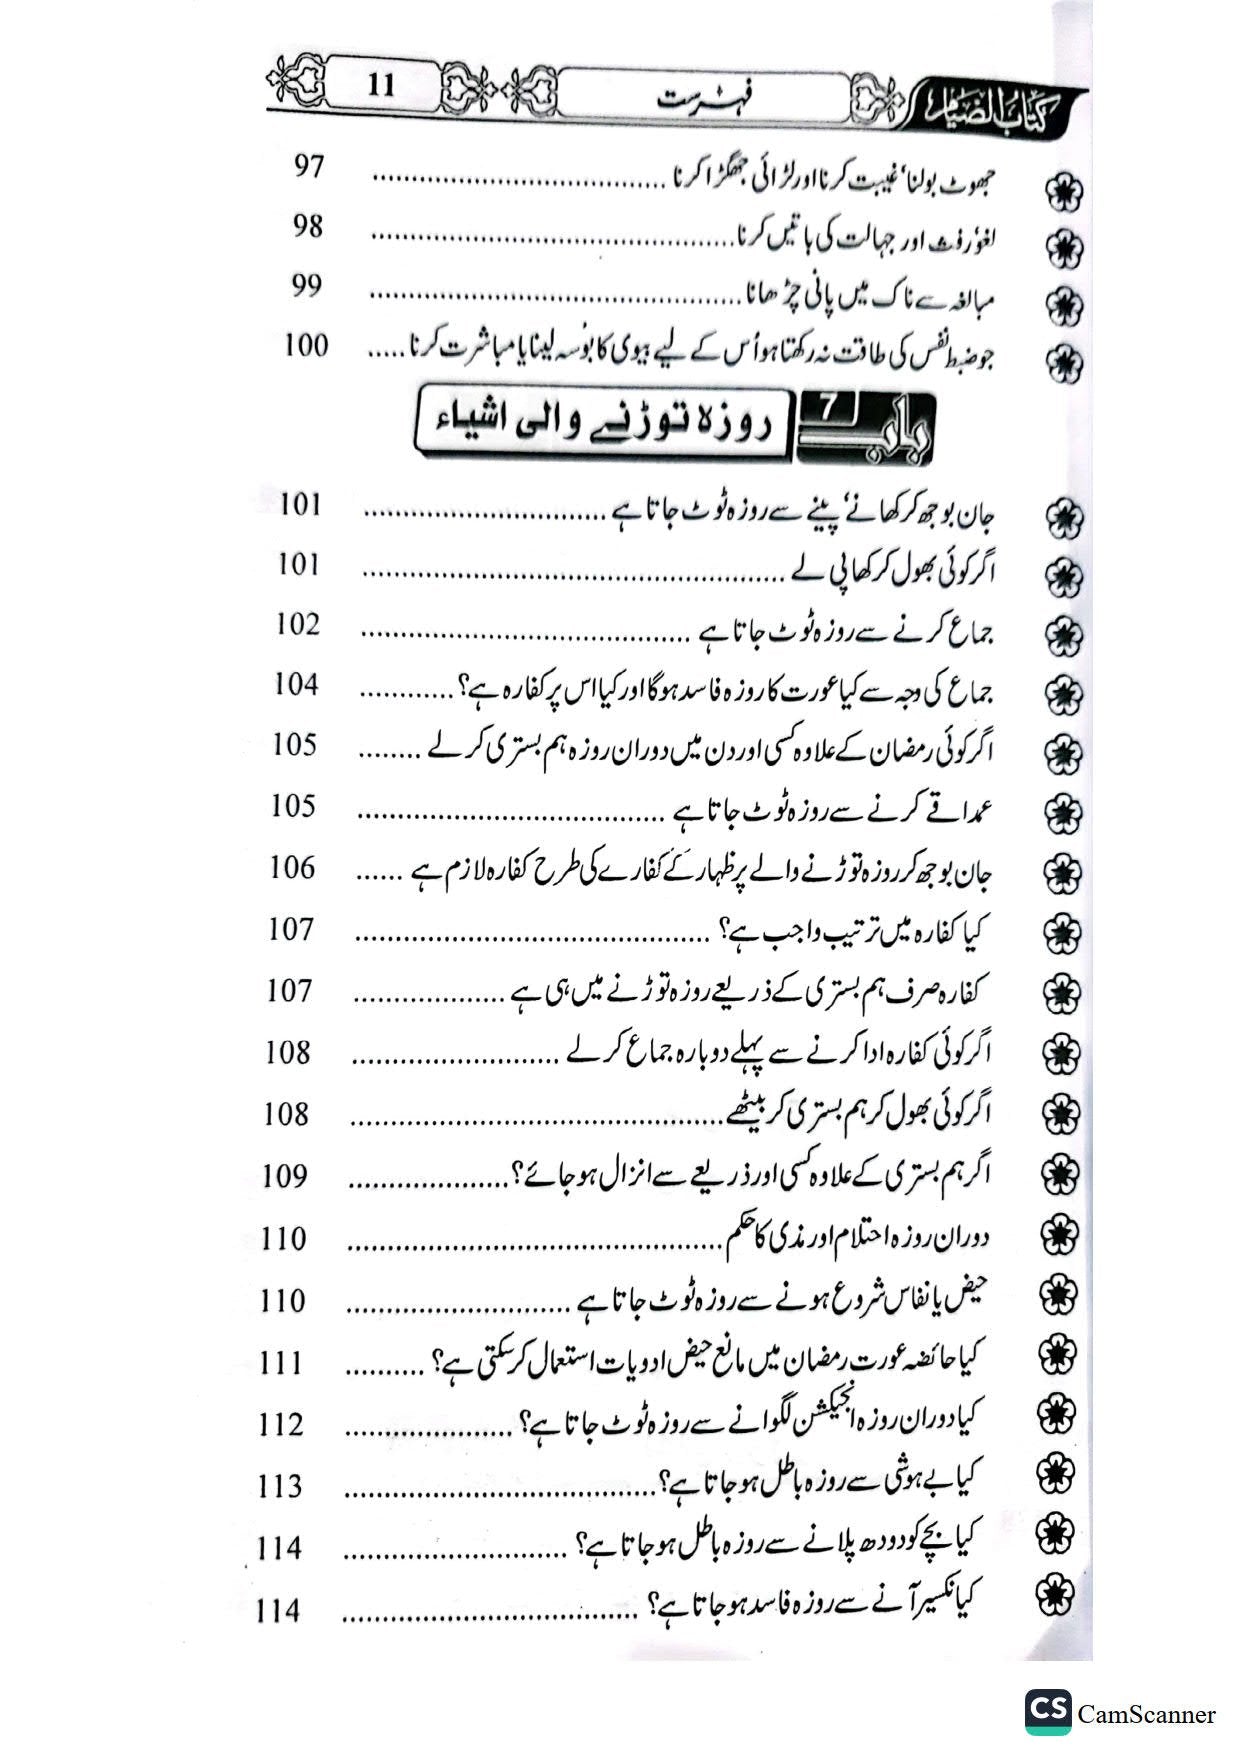 كتاب الصيام فہرست 11
جھوٹ بولنا‘ غیبت کرنا اور لڑائی جھگڑا کرنا ........ 97
لغو‘ رفث اور جہالت کی باتیں کرنا ........ 98
مبالغہ سے ناک میں پانی چڑھانا ........ 99
جو ضبط نفس کی طاقت نہ رکھتا ہو اُس کے لیے بیوی کا بوسہ لینا یا مباشرت کرنا ..... 100
باب 7 روزہ توڑنے والی اشیاء
جان بوجھ کر کھانے‘ پینے سے روزہ ٹوٹ جاتا ہے ........ 101
اگر کوئی بھول کر کھا پی لے ........ 101
جماع کرنے سے روزہ ٹوٹ جاتا ہے ........ 102
جماع کی وجہ سے کیا عورت کا روزہ فاسد ہو گا اور کیا اس پر کفارہ ہے؟ ........ 104
اگر کوئی رمضان کے علاوہ کسی اور دن میں دوران روزہ ہم بستری کر لے ........ 105
عمداً قے کرنے سے روزہ ٹوٹ جاتا ہے ........ 105
جان بوجھ کر روزہ توڑنے والے پر ظہار کے کفارے کی طرح کفارہ لازم ہے ...... 106
کیا کفارہ میں ترتیب واجب ہے؟ ........ 107
کفارہ صرف ہم بستری کے ذریعے روزہ توڑنے میں ہی ہے ........ 107
اگر کوئی کفارہ ادا کرنے سے پہلے دوبارہ جماع کر لے ........ 108
اگر کوئی بھول کر ہم بستری کر بیٹھے ........ 108
اگر ہم بستری کے علاوہ کسی اور ذریعے سے انزال ہو جائے؟ ........ 109
دوران روزہ احتلام اور مذی کا حکم ........ 110
حیض یا نفاس شروع ہونے سے روزہ ٹوٹ جاتا ہے ........ 110
کیا حائضہ عورت رمضان میں مانع حیض ادویات استعمال کر سکتی ہے؟ ........ 111
کیا دوران روزہ انجیکشن لگوانے سے روزہ ٹوٹ جاتا ہے؟ ........ 112
کیا بے ہوشی سے روزہ باطل ہو جاتا ہے؟ ........ 113
کیا بچے کو دودھ پلانے سے روزہ باطل ہو جاتا ہے؟ ........ 114
کیا نکسیر آنے سے روزہ فاسد ہو جاتا ہے؟ ........ 114
CS CamScanner